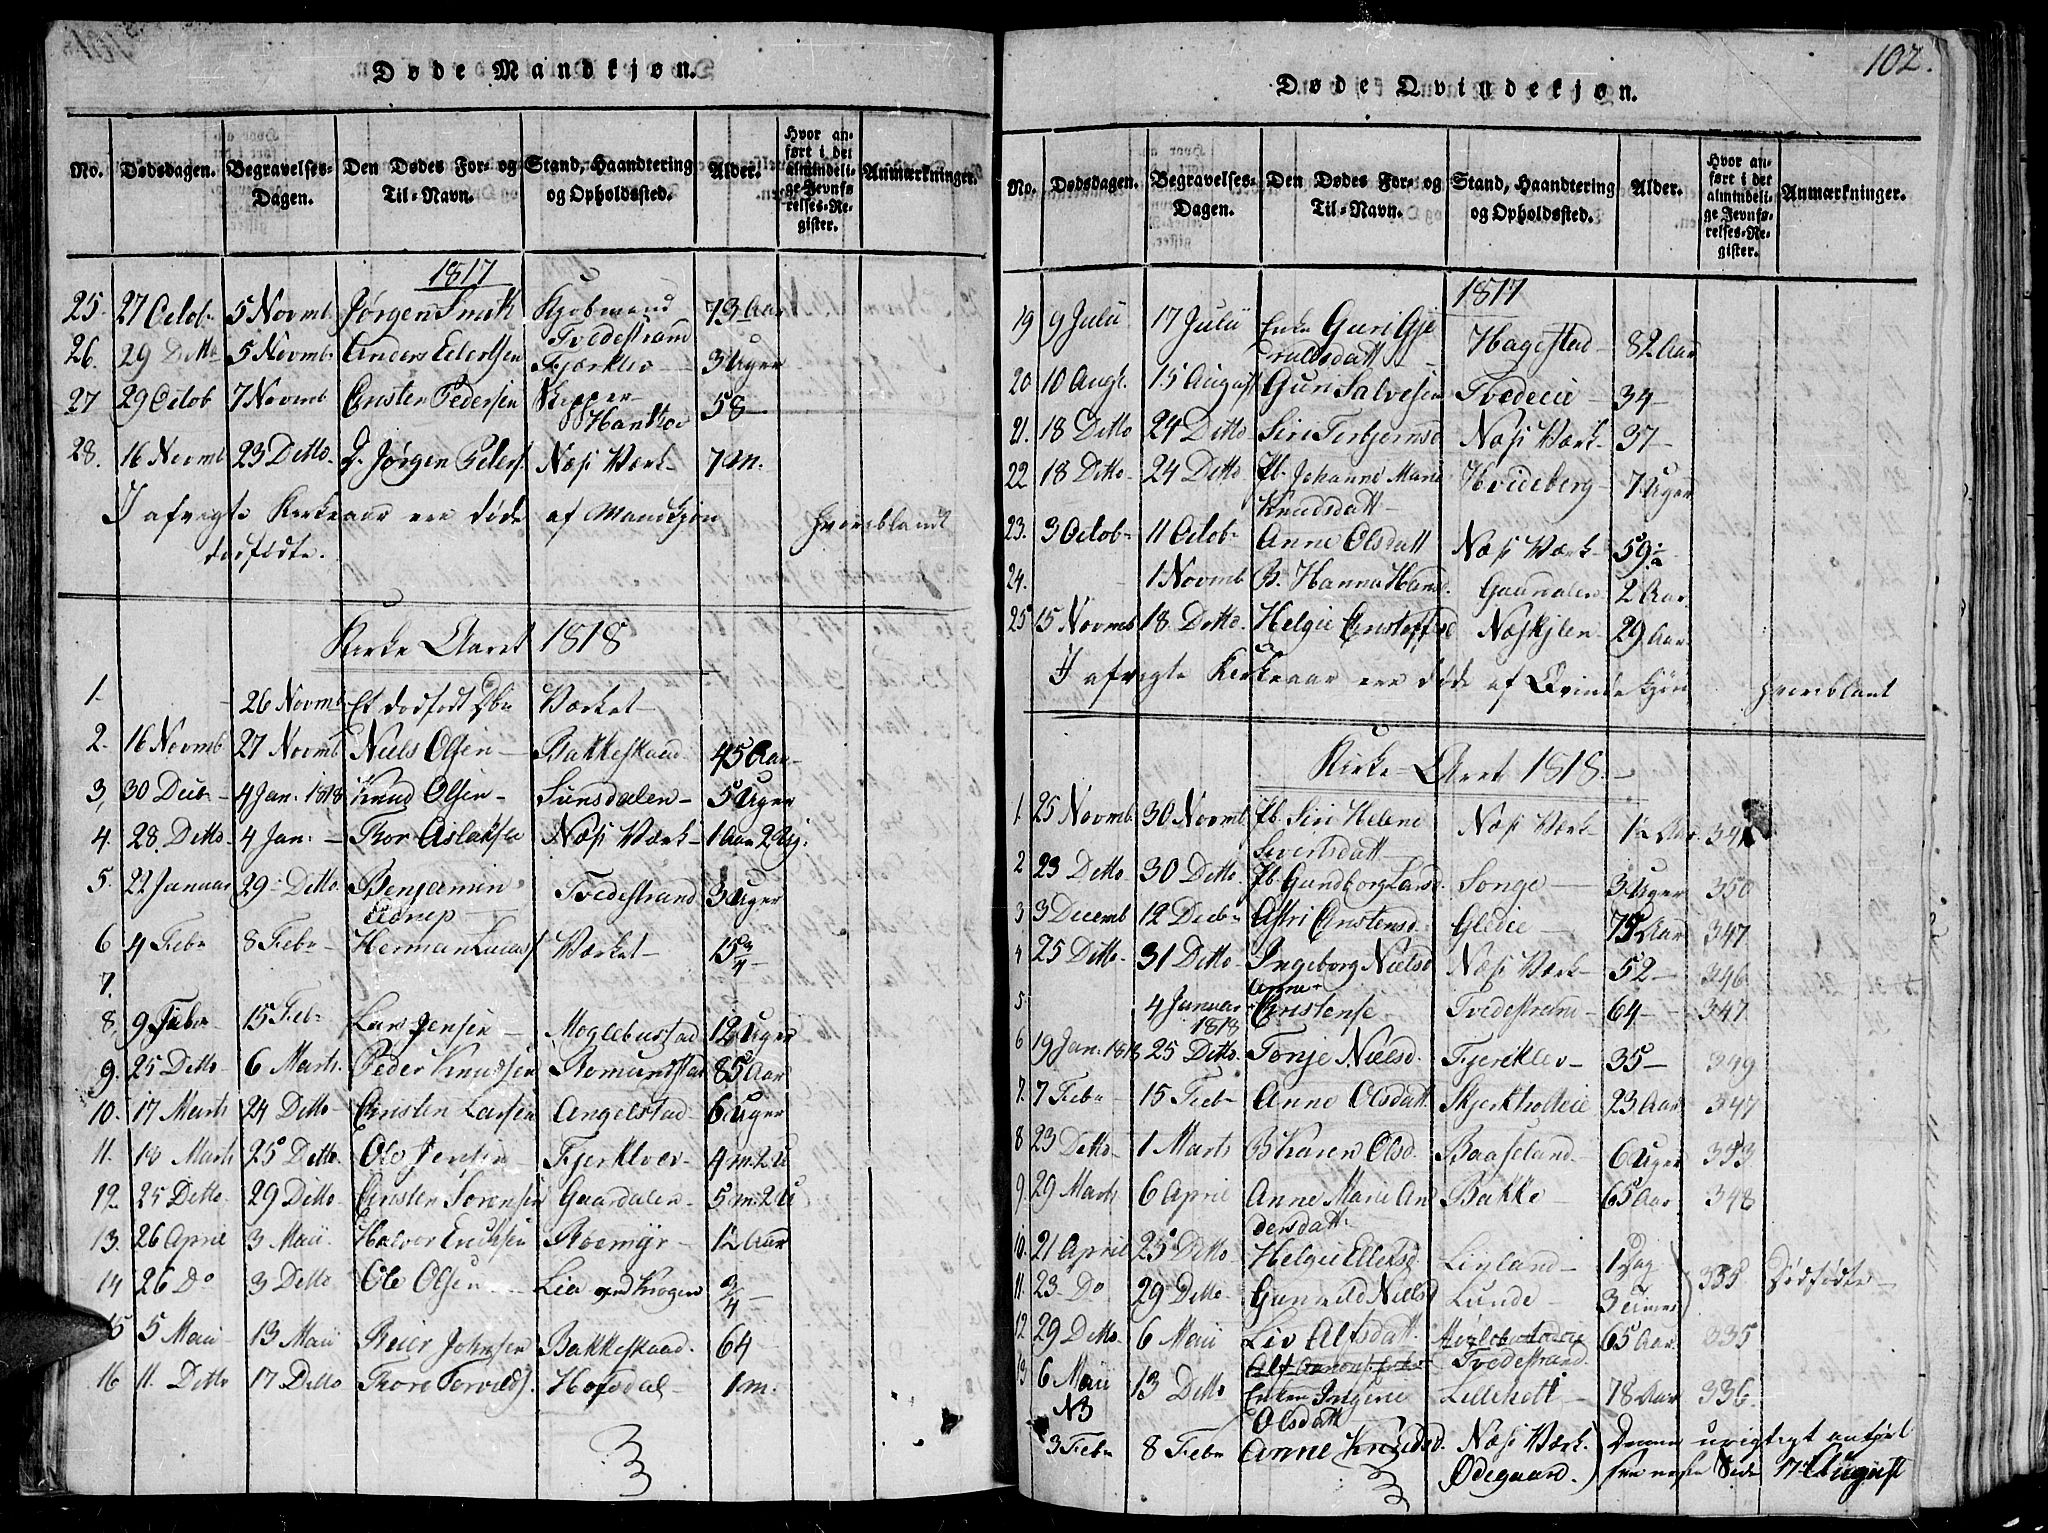 Døde Mandkjøn.
No. Dødsdagen. Begravelses-Dagen. Den Dødes For- og Til-Navn. Stand, Haandtering og Opholdssted. Alder. Hvor anført i det almindelige Jevnførelses-Register. Anmærkninger.
1817
25. 27 Octob 5 Novmb Jørgen Smik Kjøbmand Tvedestrand 73 Aar
26. 29 Ditto 5 Novmb Anders Eilertsen Fjærklev 3 Uger
27 29 Octob 7 Novmb Christen Pedersen Skipper Hantho 58
28. 16 Novmb 23 Ditto Jørgen Peders. Næss Værk 7 m.
I afvigte Kirkeaar ere døde af Mandkjøn hvoriblandt
dødfødte.
Kirke Aaret 1818
1. 26 Novmb Et dødfødt Værket
2. 16 Novmb 27 Novmb Niels Olsen Bakkeskaad 45 Aar
3, 30 Decb 4 Jan. 1818 Knud Olsen Sunsdalen 5 Uger
4. 28 Ditto 4 Jan: Thor Aslaksen Næss Værk 1 Aar 2
5. 22 Januar 29 Ditto Benjamin Tvedestrand 3 Uger
6 4 Febr 8 Febr Herman Lucas Værket 15 3/4
7.
8, 9 Febr 15 Febr Lars Jensen Moglebustad 12 Uger
9. 25 Ditto 6 Marts Peder Knudsen Romundstad 85 Aar
10. 17 Marts 24 Ditto Christen Larsen Angelstad 6 Uger
11. 18 Marts 25 Ditto Ole Jensen Fjerklev 4 m 2 U
12 25 Ditto 29 Ditto Christen Sørensen Gaardalen 5 m 2 U
13. 26 April 3 Maii Halvor Eriksen Roemyr 12 Aar
14 26 Do 3 Ditto Ole Olsen Lia ved Krogen 3/4
15 5 Maii 13 Maii Reier Johnsen Bakkeskaad 64
16 11. Ditto 17 Ditto Thore Torvelds. Hofsdal 1 m.
102.
Døde Qvindekjøn.
No. Dødsdagen. Begravelses-Dagen. Den Dødes For- og Til-Navn. Stand, Haandtering og Opholdssted. Alder. Hvor anført i det almindelige Jevnførelses-Register. Anmærkninger.
1817
19 9 Julii 17 Julii Enke Guri Gjeruldsdatt Hagestad 82 Aar
20 10 Augt. 15 August Guri Salvesen Tvedeeie 34
21. 18 Ditto 24 Ditto Siri Terbjørnsd Næss Værk 37
22 18 Ditto 24 Ditto Pb. Johanne Marie Knudsdatt Hvideberg 7 Uger
23. 3 Octob 11 Octob Anne Olsdatt Næss Værk 59
24. 1 Novmb B. Hanna Hansd. Gaardalen 2 Aar
25 15 Novmb 18 Ditto Helgie Christoffsd Næskilen 29 Aar
I afvigte Kirkeaar ere døde af Qvindekjøn hvoriblant
Kirke Aaret 1818
1. 25 Novmb. 30 Novmb Pb. Siri Helene Sivertsdatt Næss Værk 1 1/2 Aar
2 23 Ditto 30 Ditto Pb. Gundborg Larsd. Songe 3 Uger 350
3 3 Decemb 12 Decbr Astri Christensd. Gledee 75 Aar 347
4 25 Ditto 31 Ditto Ingeborg Nielsd Næss Værk 52 346
5 4 Januar 1818 Anne Christense Tvedestrand 64 347
6 19 Jan. 1818 25 Ditto Tonje Nielsd. Fjeriklev 35
7. 7 Febr 15 Febr Anne Olsdatt Skjerkholteie 23 Aar 347
8 23 Ditto 1 Marts B Karen Olsd. Baaseland 6 Uger 353
9 29 Marts 6 April Anne Marie Andersdatt. Bakke 65 Aar 348
10. 21 April 25 Ditto Helgie Ellefsd. Linland 1 Dag
11. 23 Do 29 Ditto Gunnild Nielsd Lunde 3 Timer 335 Dødfødte
12 29 Ditto 6 Maii Liv Alfsdatt. Tvedestrand 65 Aar 335
13 6 Maii 13 Ditto Enken Ingerie Olsdatt Lillehott 78 Aar 336
NB
3 Febr 8 Febr Anne Knudsd. Næss Værk Ødegaard. Denne urigtigt anført
see næste Side 17 August